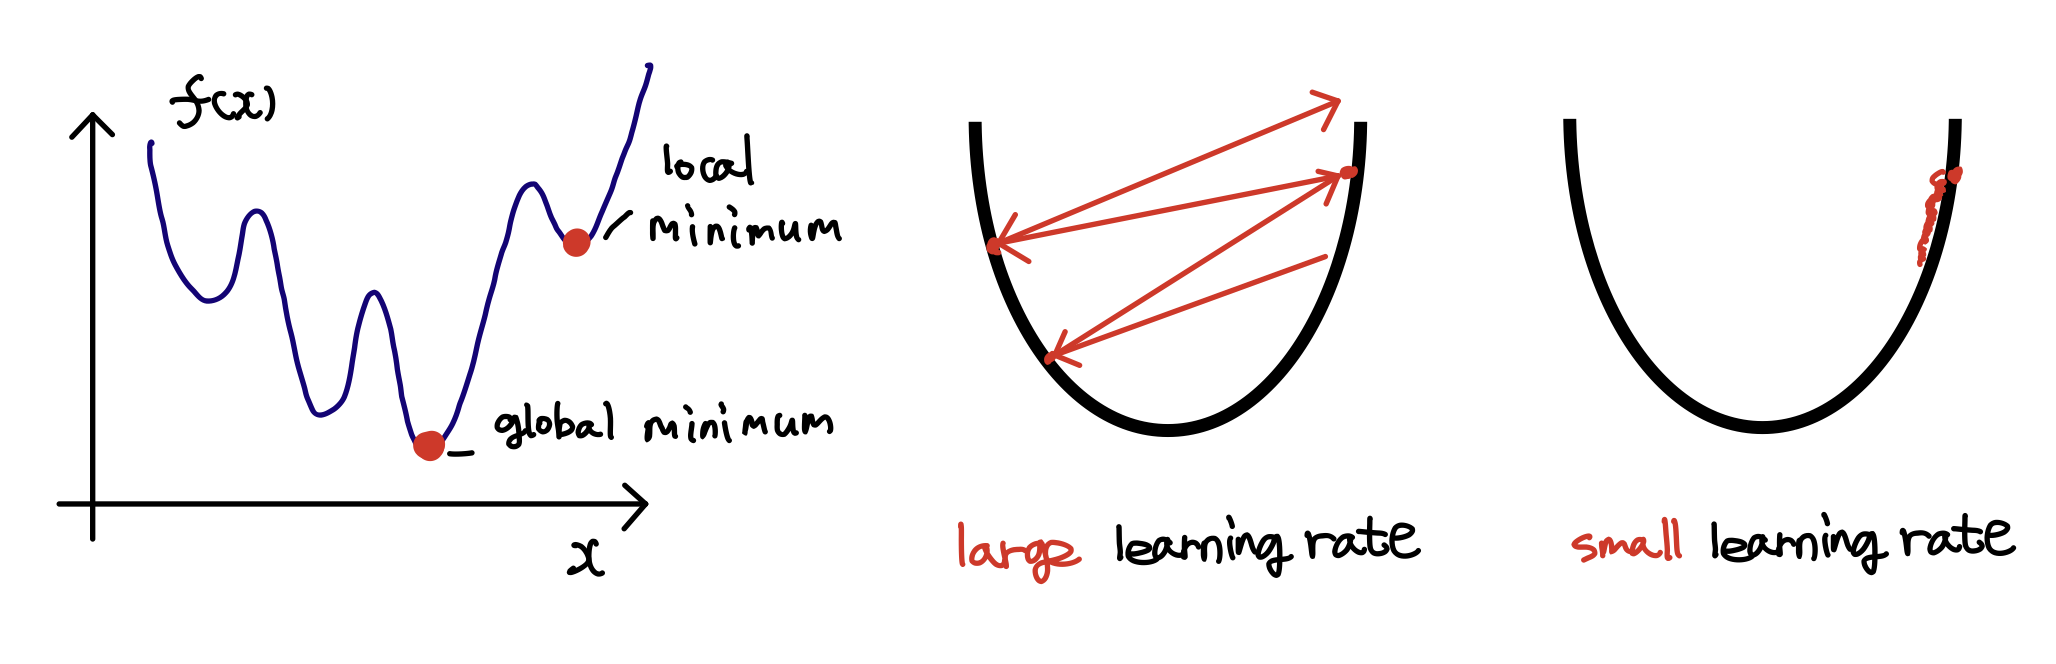 f(x)
local
minimum
global minimum
x
large learning rate
small learning rate